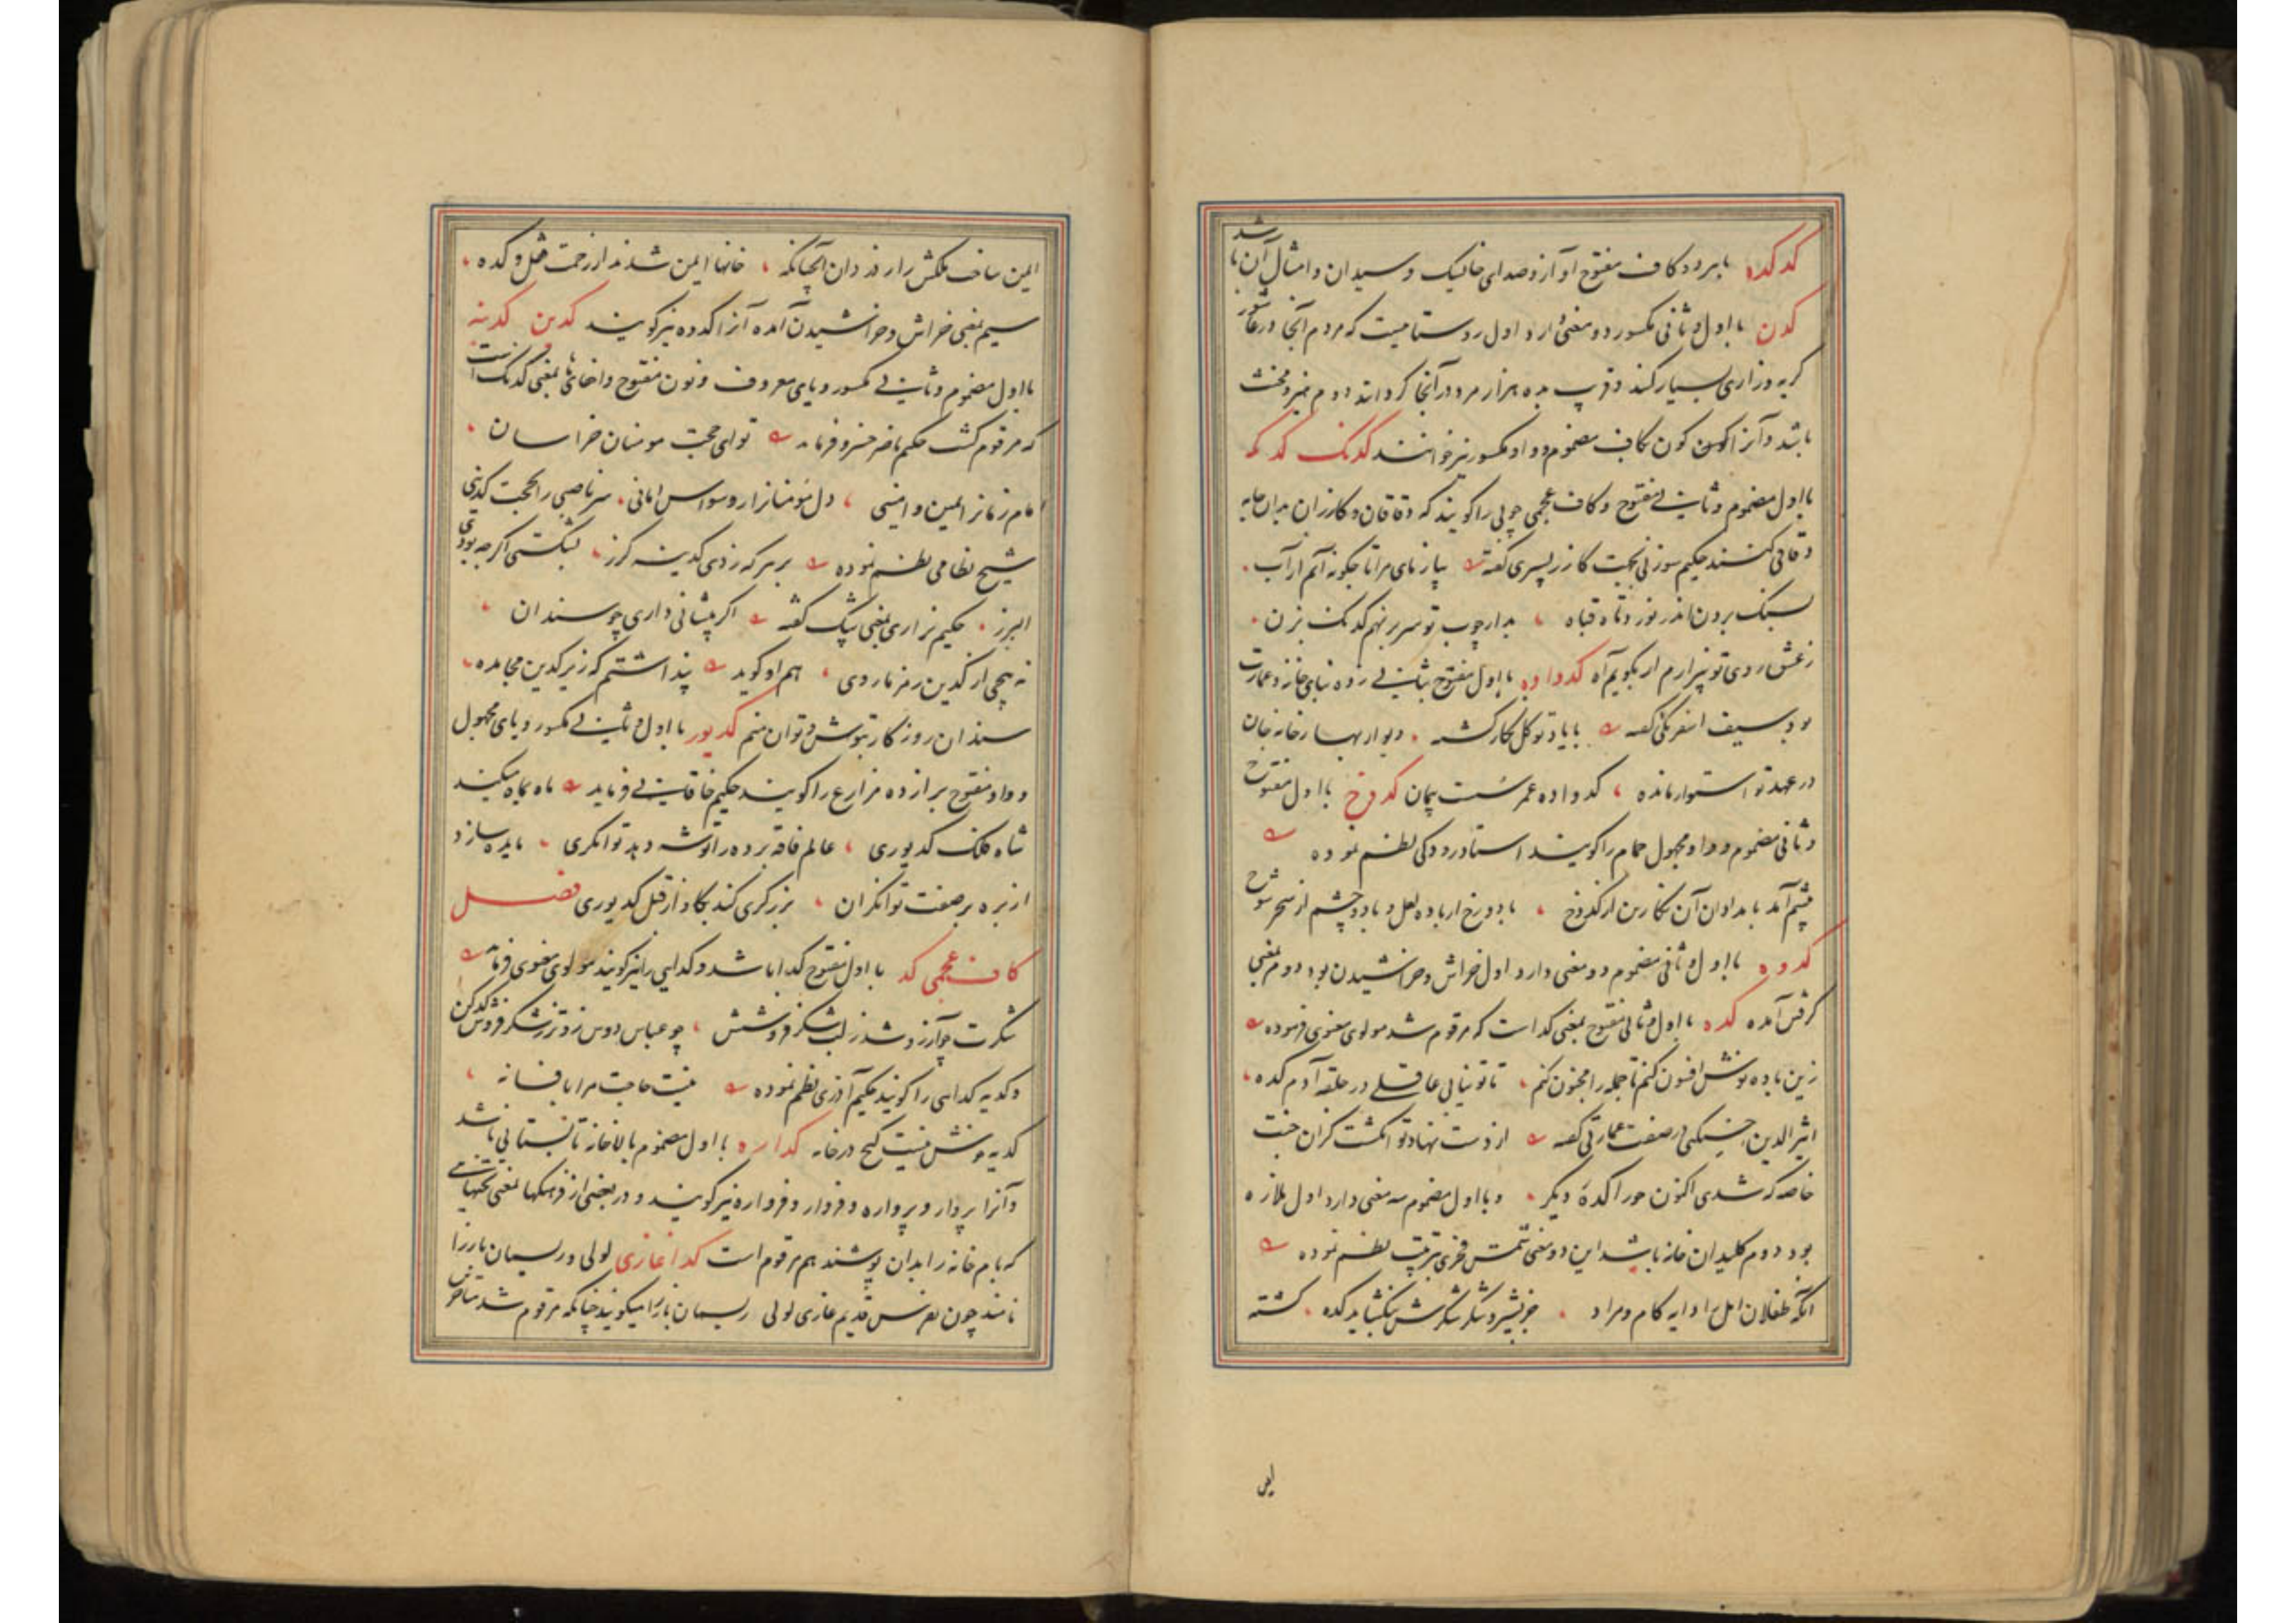 کدکده با هر دو کاف مفتوح آواز و صدای خاییک و سندان و امثال آن باشد
کدن با اول و ثانی مکسور دو معنی دارد اول روستاییست که مردم آنجا در عاشور
گریه و زاری بسیار کنند و قریب به ده هزار مرد در آنجا گرد آیند دوم حیز و مخنث
باشد و آنرا کون بکاف مضموم و واو مکسور نیز خوانند کدنک کدنکه
با اول مضموم و ثانی مفتوح و کاف عجمی چوبی را گویند که دقاقان و گازران بدان جامه
دقاقی کنند حکیم سوزنی بجهت گازر پسری گفته بیاز نای مرا تا چگونه آیم از آب
سنگ بردن اندر نورد تاه قباه بدار چوب تو سر بر نهم کدنک بزن
ز عشق روی تو بیزارم ار بگویم آه کدواده با اول مفتوح بثانی زده بنای خانه و عمارت
بود سیف اسفرنگی گفته با یاد توکل بکار گشته دیوار بهار خانه جان
در عهد تو استوار مانده کدواده عمر سست پیمان کدوخ با اول مفتوح
و ثانی مضموم و واو مجهول حمام را گویند استاد رودکی نظم نموده
پیشم آمد بامدادان آن نگارین از کدوخ با دو رخ از باده لعل و با دو چشم از سحر شوخ
کدوه با اول و ثانی مضموم دو معنی دارد اول خراش و خراشیدن بود دوم بمعنی
گرفتن آمده کده با اول و ثانی مفتوح بمعنی کد است که مرقوم شد مولوی معنوی فرموده
زین باده نوش افسون کنم تا جمله را مجنون کنم تا تو نیابی عاقلی در حلقه آدم کده
اثیرالدین اخسیکتی در صفت عمارتی گفته از دست نهاد تو انگشت گزان جنت
خاصه که شدی اکنون حورا کدهٔ دیگر و با اول مضموم سه معنی دارد اول ملازه
بود دوم کلیدان خانه باشد این دو معنی شمس فخری بترتیب نظم نموده
آنکه طفلان امل را دایه کام و مراد جز بشیر و شکر شکرش نگشاید کده گشته
ایمن
ایمن ساحت ملکش را ر دزدان آنچنانکه خانها ایمن شدند از زحمت قفل و کده
سیم بمعنی خراش و خراشیدن آمده آنرا کدوه نیز گویند کدین کدینه
با اول مضموم و ثانی مکسور و یای معروف و نون مفتوح و اخفای ها بمعنی کدنک است
که مرقوم گشت حکیم ناصر خسرو فرماید تو ای حجت مومنان خراسان
امام زمانرا امین و امینی دل مومنانرا ز وسواس امانی سر ناصبی را بحجت کدینی
شیخ نظامی نظم نموده بر هر که زدی کدینه گرز بشکستی اگرچه بودی
البرز حکیم نزاری بمعنی پتک گفته اگر پیشانی داری چو سندان
نه پیچی از کدین رمز ما روی هم او گوید پنداشتم که زیر کدین مجاهده
سندان روزگار بتوش و توان منم کدیور با اول و ثانی مکسور و یای مجهول
و واو مفتوح برازده مزارع را گویند حکیم خاقانی فرماید ماه بماه میکند
شاه فلک کدیوری عالم فاقه برده را توشه دهد توانگری مایده سازد
از بره بر صفت توانگران بزرگری کند بگاو از قبل کدیوری فصل
کاف عجمی کد با اول مفتوح گدا باشد و گدایی را نیز گویند مولوی معنوی فرماید
شکرت چو آرزو شد ز لب شکر فروشش چو عباس دوس زوتر ز شکر فروش کدکن
و کدیه گدایی را گویند حکیم آذری نظم نموده نیست حاجت مرا بافسانه
کدیه منش نیست کیح در خانه کداره با اول مضموم بالاخانه تابستانی باشد
و آنرا پروار و پرواره و فروار و فرواره نیز گویند و در بعضی از فرهنگها بمعنی تختهایی
که بام خانه را بدان پوشند هم مرقوم است کداغازی لولی و ریسمان باز را
نامند چون بفرس قدیم غازی لولی ریسمان باز را میگویند چنانکه مرقوم شد متاخرین